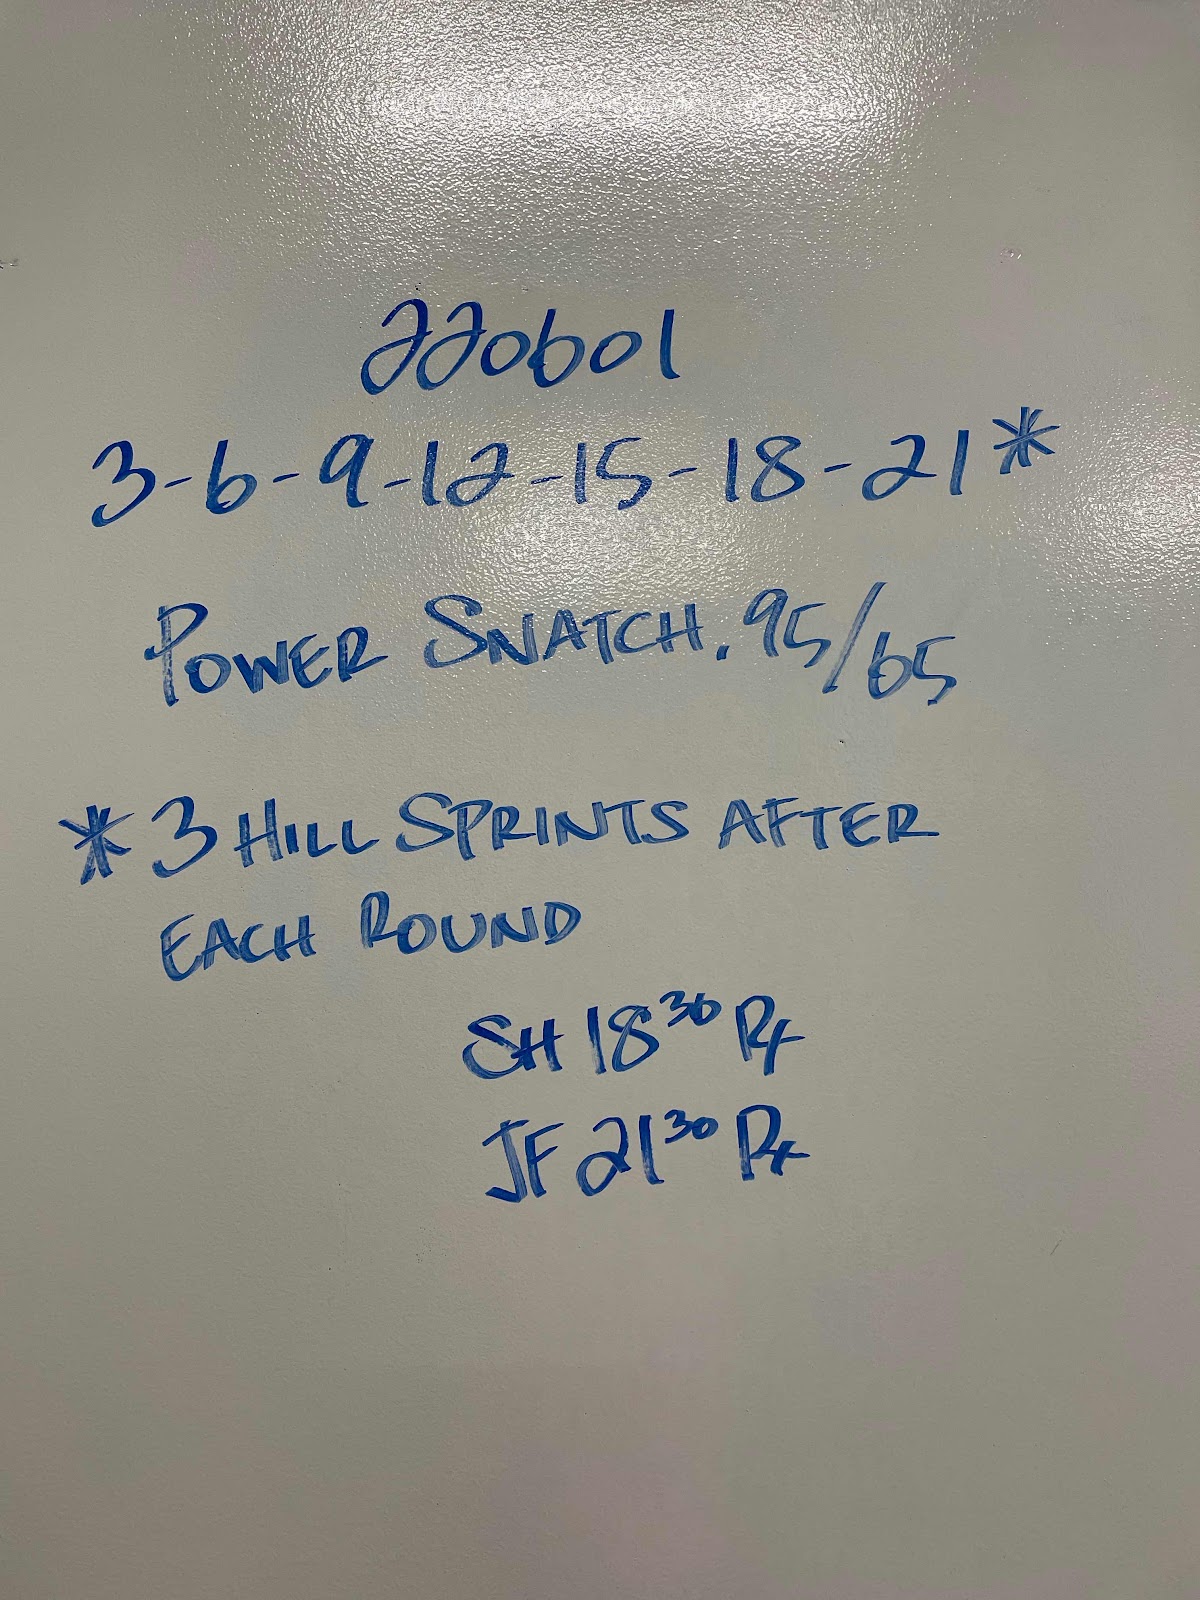 220601
3-6-9-12-15-18-21*
POWER SNATCH. 95/65
*3 HILL SPRINTS AFTER
EACH ROUND
SH 18³⁶ Rx
JF 21³⁰ Rx